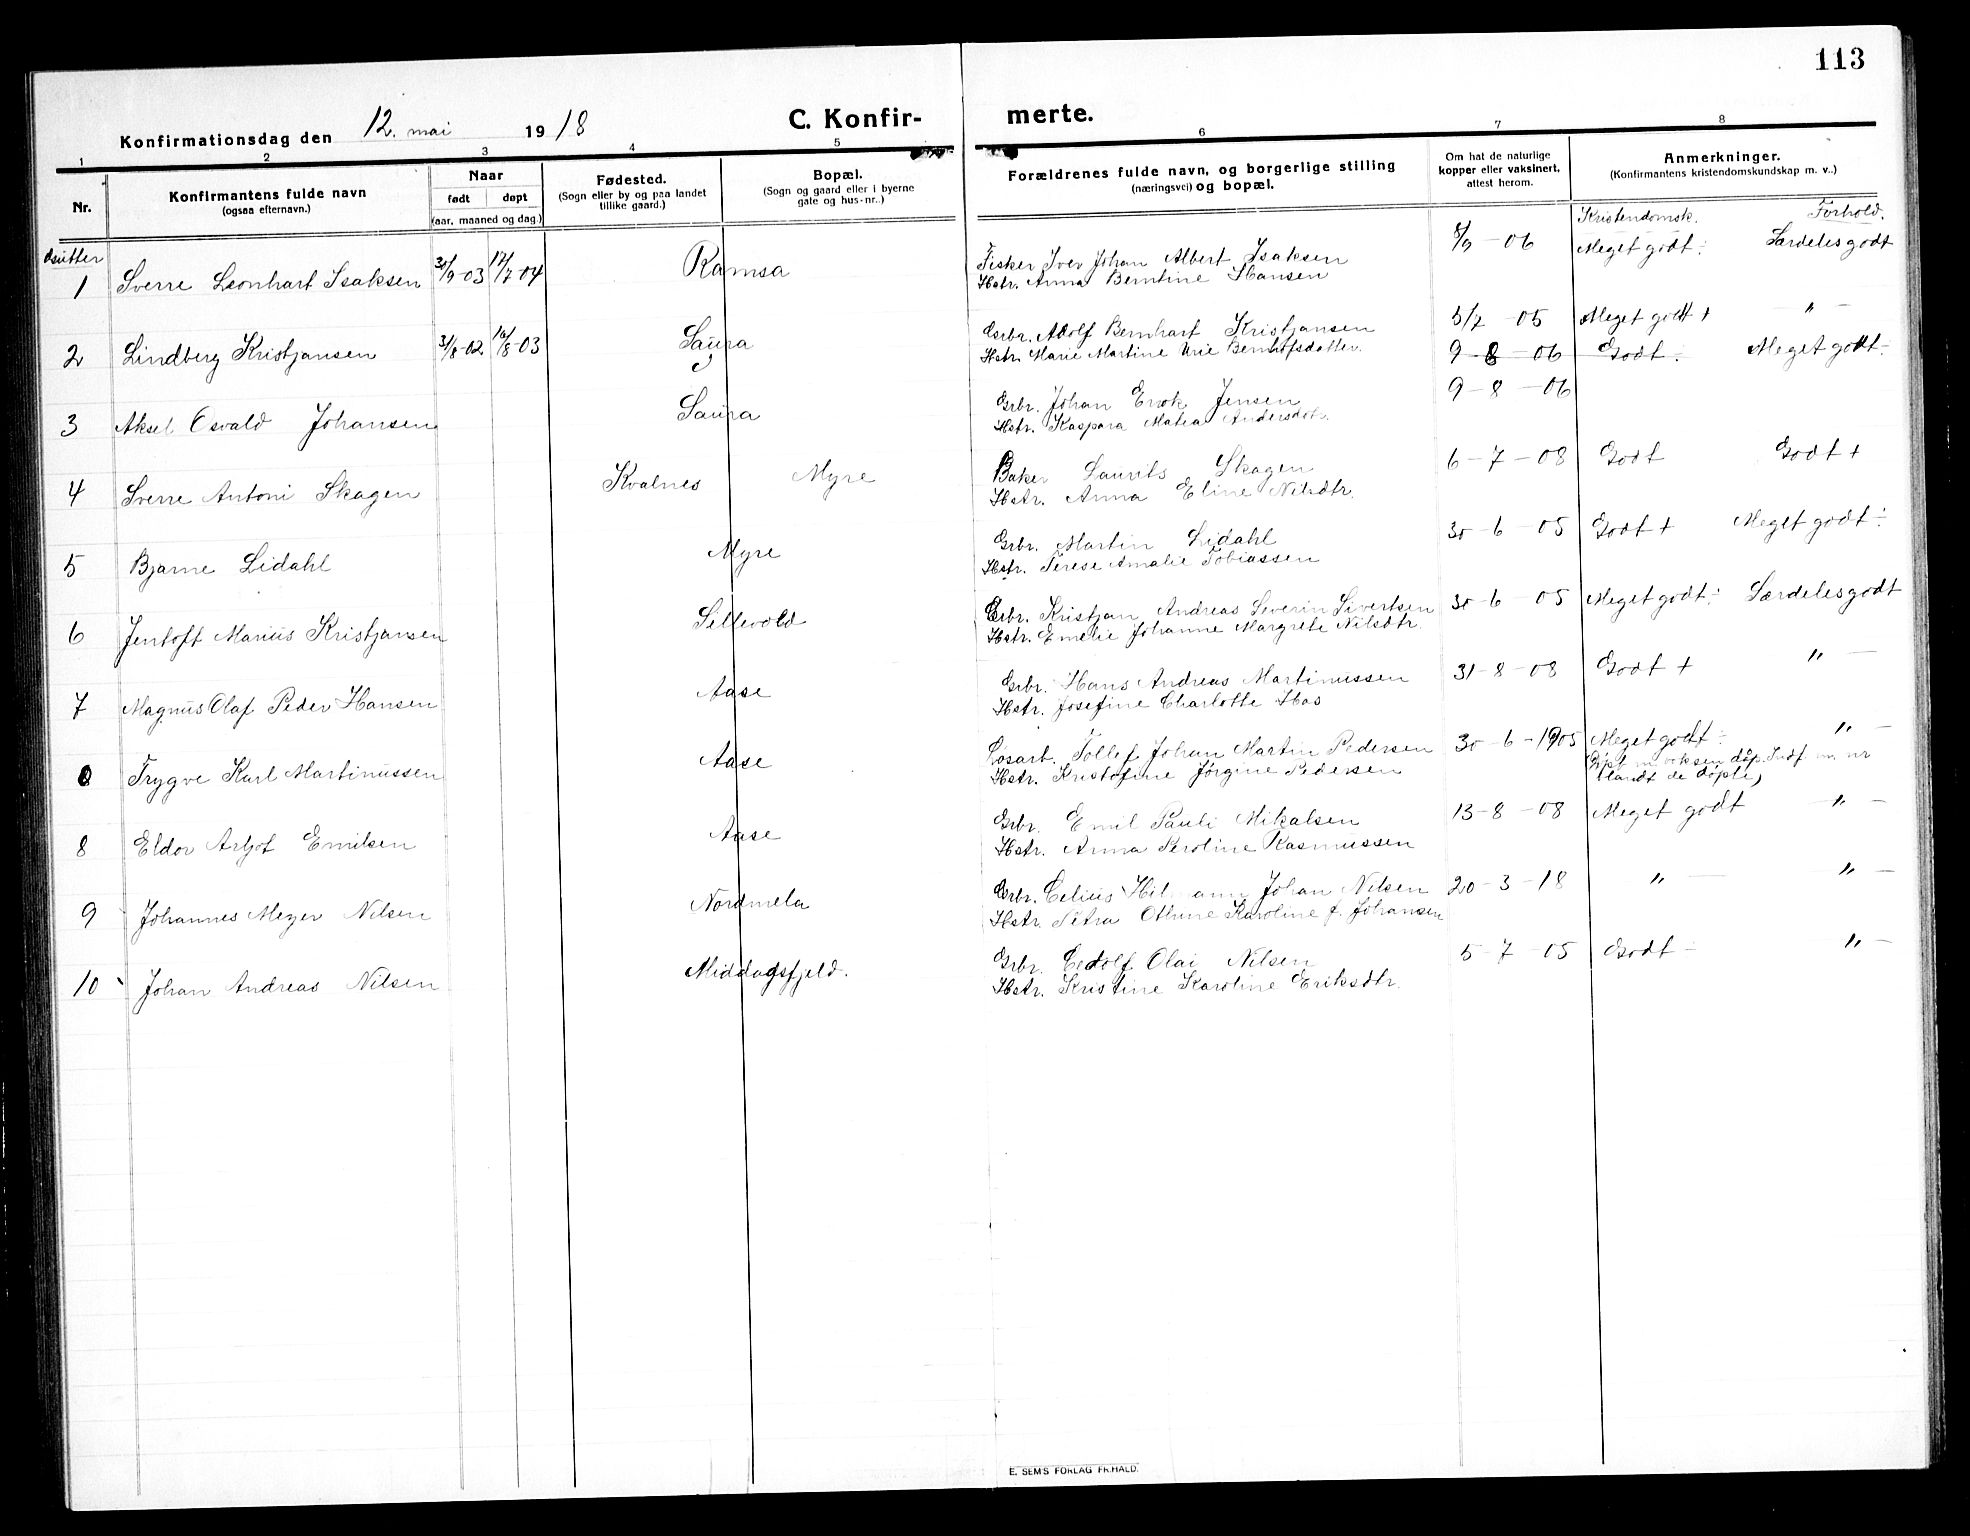 113
Konfirmationsdag den 12. mai 1918 C. Konfir- merte.
1 2 3 4 5 6 7 8
Nr. Konfirmantens fulde navn (ogsaa efternavn.)
Naar født døpt (aar, maaned og dag.)
Fødested. (Sogn eller by og paa landet tillike gaard.)
Bopæl. (Sogn og gaard eller i byerne gate og hus-nr..)
Forældrenes fulde navn, og borgerlige stilling (næringsvei) og bopæl.
Om hat de naturlige kopper eller vaksinert, attest herom.
Anmerkninger. (Konfirmantens kristendomskundskap m. v..)
Kristendomsk. Forhold.
Gutter
1 Sverre Leonhart Isaksen 30/9-03 17/7-04 Ramsa Fisker Iver Johan Albert Isaksen 8/9-06 Meget godt ÷ Særdeles godt
Hstr. Anna Berntine Hansen
2 Lindberg Kristjansen 31/8-02 16/8-03 Saura Grbr. Adolf Bernhart Kristjansen 5/7-05 Meget godt + " —
Hstr. Marie Martine Urie Bernhofsdatter. 9-8-06 Godt ÷ Meget godt ÷
3 Aksel Osvald Johansen Saura Grbr. Johan Enok Jensen 9-8-06
Hstr. Kaspara Matea Andersdtr.
4 Sverre Antoni Skagen Kvalnes Myre Baker Laurits Skagen 6-7-08 Godt Godt +
Hstr. Anna Eline Nilsdtr.
5 Bjarne Lidahl Myre Grbr. Martin Lidahl 30-6-05 Godt + Meget godt ÷
Hstr. Terese Amalie Tobiassen
6 Jentoft Marius Kristjansen Sellevold Grbr. Kristjan Andreas Severin Sivertsen 30-6-05 Meget godt ÷ Særdeles godt
Hstr. Emelie Johanne Margrete Nilsdtr.
7 Magnus Olaf Peder Hansen Aase Grbr. Hans Andreas Martinussen 31-8-08 Godt + " —
Hstr. Josefine Charlotte Has
8 Trygve Karl Martinussen Aase Løsarb. Tollef Johan Martin Pedersen 30-6-1905 Meget godt ÷ " —
Hstr. Kristofine Jørgine Pedersen Døpt m voksen dåp. Indf. m. nr
blandt de døpte,
8 Eldor Arljot Emilsen Aase Grbr. Emil Pauli Mikalsen 13-8-08 Meget godt " —
Hstr. Anna Peroline Rasmussen
9 Johannes Meyer Nilsen Nordmela Grbr. Celius Hilmann Johan Nilsen 20-3-18 " — " —
Hstr. Petra Othine Karoline f. Johansen
10 Johan Andreas Nilsen Middagsfjeld. Grbr. Edolf Olai Nilsen 5-7-05 Godt — " —
Hstr. Kristine Karoline Eriksdtr.
E. SEMS FORLAG FR.HALD.